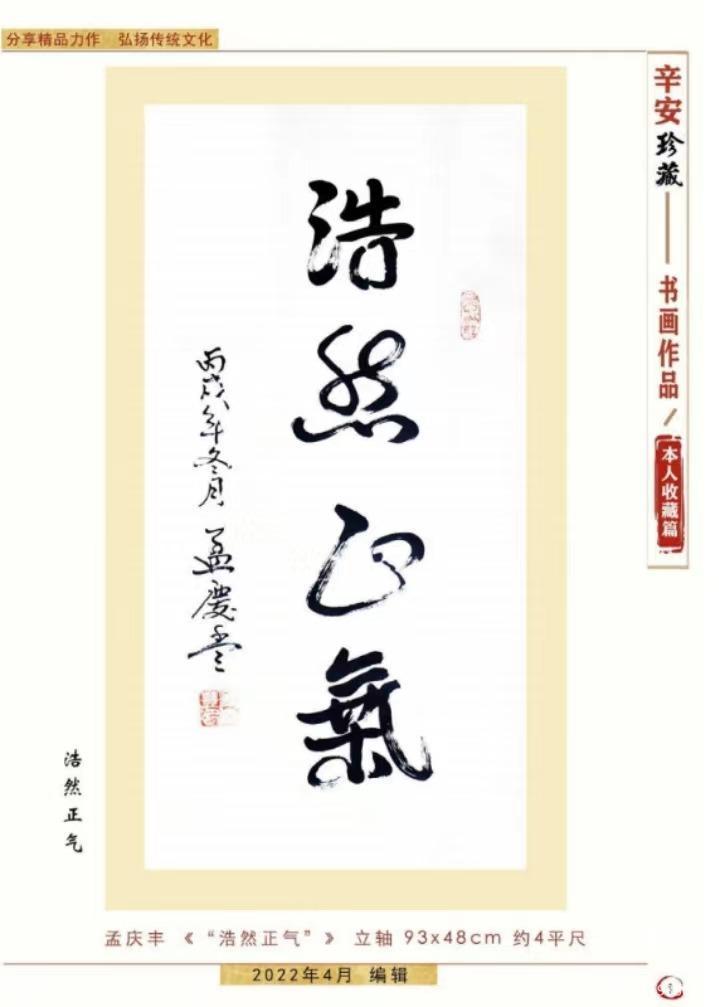 分享精品力作 弘扬传统文化
辛安珍藏——书画作品/本人收藏篇
浩然正氣
丙戌年冬月 孟慶丰
浩然正气
孟庆丰 《“浩然正气”》 立轴 93x48cm 约4平尺
2022年4月 编辑